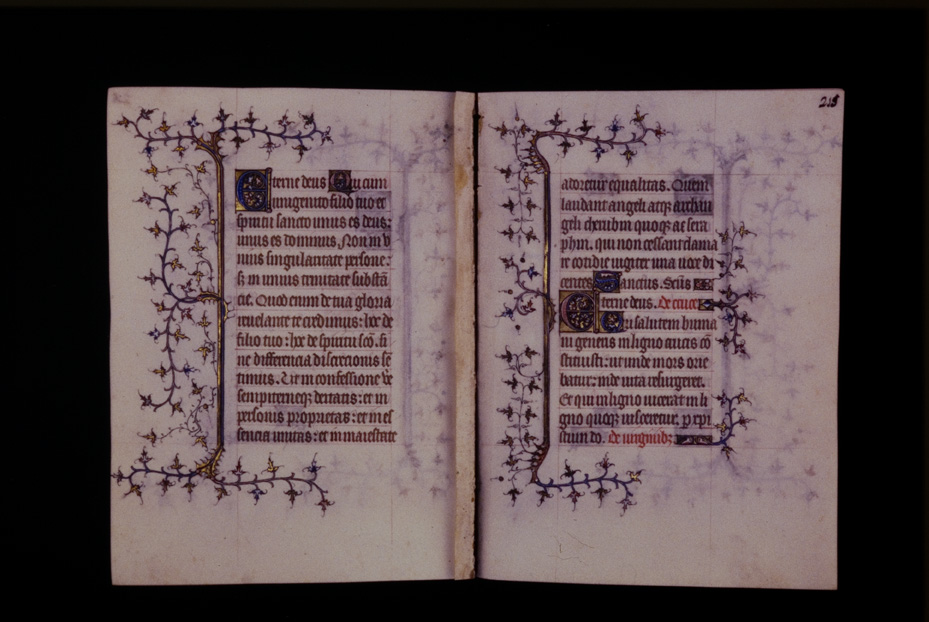 Eterne deus Qui cum
unigenito filio tuo et
spiritu sancto unus es deus:
unus es dominus, Non in v
nius singularitate persone:
s; in unius trinitate substā
cie. Quod enim de tua gloria
reuelante te credimus: hoc de
filio tuo: hoc de spiritu sc̄o. si
ne differencia discrecionis sē
timus. Ut in confessione ve
sempiterneq; deitatis: et in
personis proprietas: et in es
sencia unitas: et in maiestate
215
adoretur equalitas. Quem
laudant angeli atq; archan
geli cherubim quoq; ac sera
phin. qui non cessant clama
re cotidie iugiter una uoce di
centes Sanctus. Sc̄us
Eterne deus. De cruce
Qui salutem huma
ni generis in ligno crucis cō
stituisti: ut unde mors orie
batur: inde uita resurgeret.
Et qui in ligno uicerat in li
gno quoq; uinceretur. p xp̄i
stum do. de uirginib;